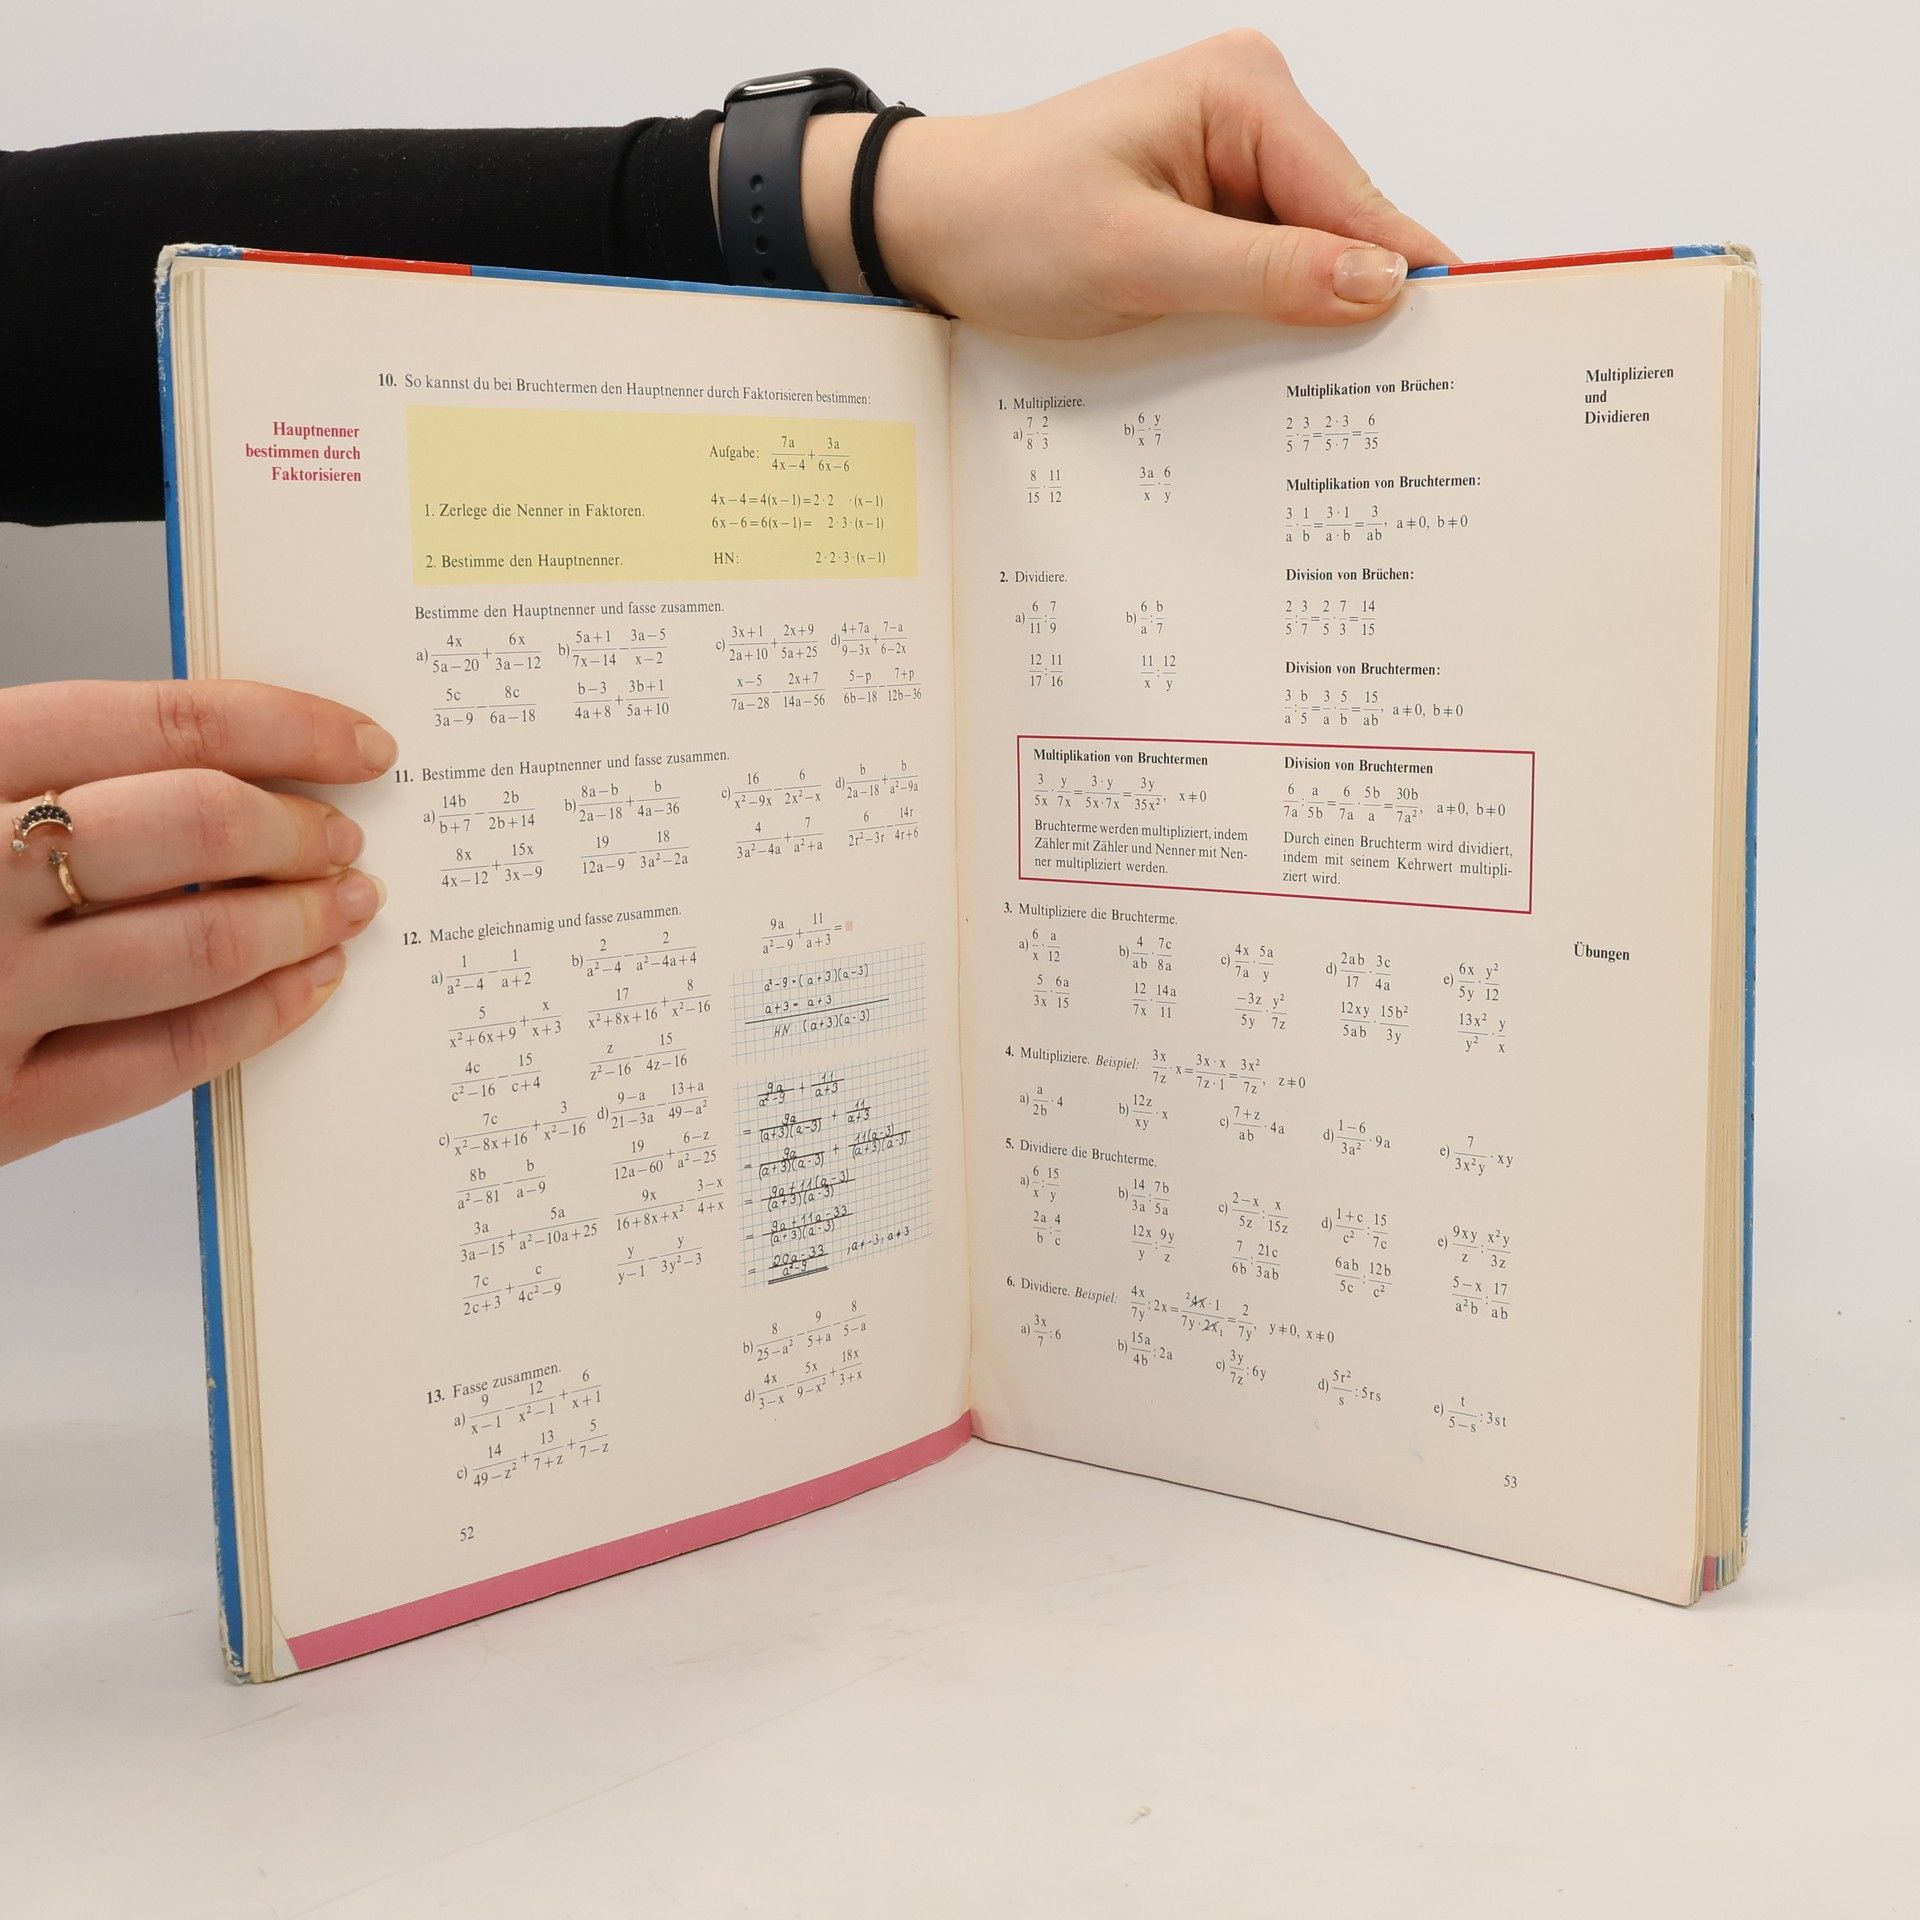 Hauptnenner
bestimmen durch
Faktorisieren
10. So kannst du bei Bruchtermen den Hauptnenner durch Faktorisieren bestimmen:
Aufgabe: 7a/(4x−4) + 3a/(6x−6)
1. Zerlege die Nenner in Faktoren.
4x−4=4(x−1)=2·2 ·(x−1)
6x−6=6(x−1)= 2·3·(x−1)
2. Bestimme den Hauptnenner. HN: 2·2·3·(x−1)
Bestimme den Hauptnenner und fasse zusammen.
a) 4x/(5a−20) + 6x/(3a−12) b) (5a+1)/(7x−14) − (3a−5)/(x−2) c) (3x+1)/(2a+10) + (2x+9)/(5a+25) d) (4+7a)/(9−3x) + (7−a)/(6−2x)
5c/(3a−9) − 8c/(6a−18) (b−3)/(4a+8) + (3b+1)/(5a+10) (x−5)/(7a−28) − (2x+7)/(14a−56) (5−p)/(6b−18) − (7+p)/(12b−36)
11. Bestimme den Hauptnenner und fasse zusammen.
a) 14b/(b+7) − 2b/(2b+14) b) (8a−b)/(2a−18) + b/(4a−36) c) 16/(x²−9x) − 6/(2x²−x) d) b/(2a−18) + b/(a²−9a)
8x/(4x−12) + 15x/(3x−9) 19/(12a−9) − 18/(3a²−2a) 4/(3a²−4a) + 7/(a²+a) 6/(2r²−3r) − 14r/(4r+6)
12. Mache gleichnamig und fasse zusammen.
a) 1/(a²−4) − 1/(a+2) b) 2/(a²−4) − 2/(a²−4a+4)
5/(x²+6x+9) + x/(x+3) 17/(x²+8x+16) + 8/(x²−16)
4c/(c²−16) − 15/(c+4) z/(z²−16) − 15/(4z−16)
c) 7c/(x²−8x+16) + 3/(x²−16) d) (9−a)/(21−3a) − (13+a)/(49−a²)
8b/(a²−81) − b/(a−9) 19/(12a−60) + (6−z)/(a²−25)
3a/(3a−15) + 5a/(a²−10a+25) 9x/(16+8x+x²) − (3−x)/(4+x)
7c/(2c+3) + c/(4c²−9) y/(y−1) − y/(3y²−3)
9a/(a²−9) + 11/(a+3) =
a²−9=(a+3)(a−3)
a+3= a+3
HN: (a+3)(a−3)
9a/(a²−9) + 11/(a+3)
= 9a/((a+3)(a−3)) + 11/(a+3)
= 9a/((a+3)(a−3)) + 11(a−3)/((a+3)(a−3))
= (9a+11(a−3))/((a+3)(a−3))
= (9a+11a−33)/((a+3)(a−3))
= (20a−33)/(a²−9) , a≠−3, a≠3
13. Fasse zusammen.
a) 9/(x−1) − 12/(x²−1) + 6/(x+1) b) 8/(25−a²) − 9/(5+a) − 8/(5−a)
c) 14/(49−z²) + 13/(7+z) + 5/(7−z) d) 4x/(3−x) − 5x/(9−x²) + 18x/(3+x)
52
Multiplizieren
und
Dividieren
1. Multipliziere.
a) 7/8 · 2/3 b) 6/x · y/7
8/15 · 11/12 3a/x · 6/y
Multiplikation von Brüchen:
2/5 · 3/7 = (2·3)/(5·7) = 6/35
Multiplikation von Bruchtermen:
3/a · 1/b = (3·1)/(a·b) = 3/ab, a≠0, b≠0
2. Dividiere.
a) 6/11 : 7/9 b) 6/a : b/7
12/17 : 11/16 11/x : 12/y
Division von Brüchen:
2/5 : 3/7 = 2/5 · 7/3 = 14/15
Division von Bruchtermen:
3/a : b/5 = 3/a · 5/b = 15/ab, a≠0, b≠0
Multiplikation von Bruchtermen
3/5x · y/7x = (3·y)/(5x·7x) = 3y/35x², x≠0
Bruchterme werden multipliziert, indem
Zähler mit Zähler und Nenner mit Nen-
ner multipliziert werden.
Division von Bruchtermen
6/7a : a/5b = 6/7a · 5b/a = 30b/7a², a≠0, b≠0
Durch einen Bruchterm wird dividiert,
indem mit seinem Kehrwert multipli-
ziert wird.
Übungen
3. Multipliziere die Bruchterme.
a) 6/x · a/12 b) 4/ab · 7c/8a c) 4x/7a · 5a/y d) 2ab/17 · 3c/4a e) 6x/5y · y²/12
5/3x · 6a/15 12/7x · 14a/11 −3z/5y · y²/7z 12xy/5ab · 15b²/3y 13x²/y² · y/x
4. Multipliziere. Beispiel: 3x/7z · x = (3x·x)/(7z·1) = 3x²/7z, z≠0
a) a/2b · 4 b) 12z/xy · x c) (7+z)/ab · 4a d) (1−6)/3a² · 9a e) 7/3x²y · xy
5. Dividiere die Bruchterme.
a) 6/x : 15/y b) 14/3a : 7b/5a c) (2−x)/5z : x/15z d) (1+c)/c² : 15/7c e) 9xy/z : x²y/3z
2a/b : 4/c 12x/y : 9y/z 7/6b : 21c/3ab 6ab/5c : 12b/c² (5−x)/a²b : 17/ab
6. Dividiere. Beispiel: 4x/7y : 2x = (²4x·1)/(7y·2x₁) = 2/7y, y≠0, x≠0
a) 3x/7 : 6 b) 15a/4b : 2a c) 3y/7z : 6y d) 5r²/s : 5rs e) t/(5−s) : 3st
53